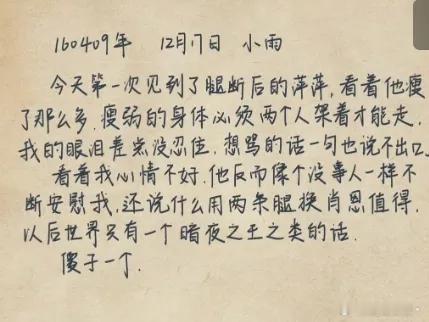 160409年 12月17日 小雨
今天第一次见到了腿断后的萍萍，看着他瘦
了那么多，瘦弱的身体必须两个人架着才能走，
我的眼泪差点没忍住，想骂的话一句也说不出口。
看着我心情不好，他反而像个没事人一样不
断安慰我，还说什么用两条腿换肖恩值得，
以后世界只有一个暗夜之王之类的话。
傻子一个.